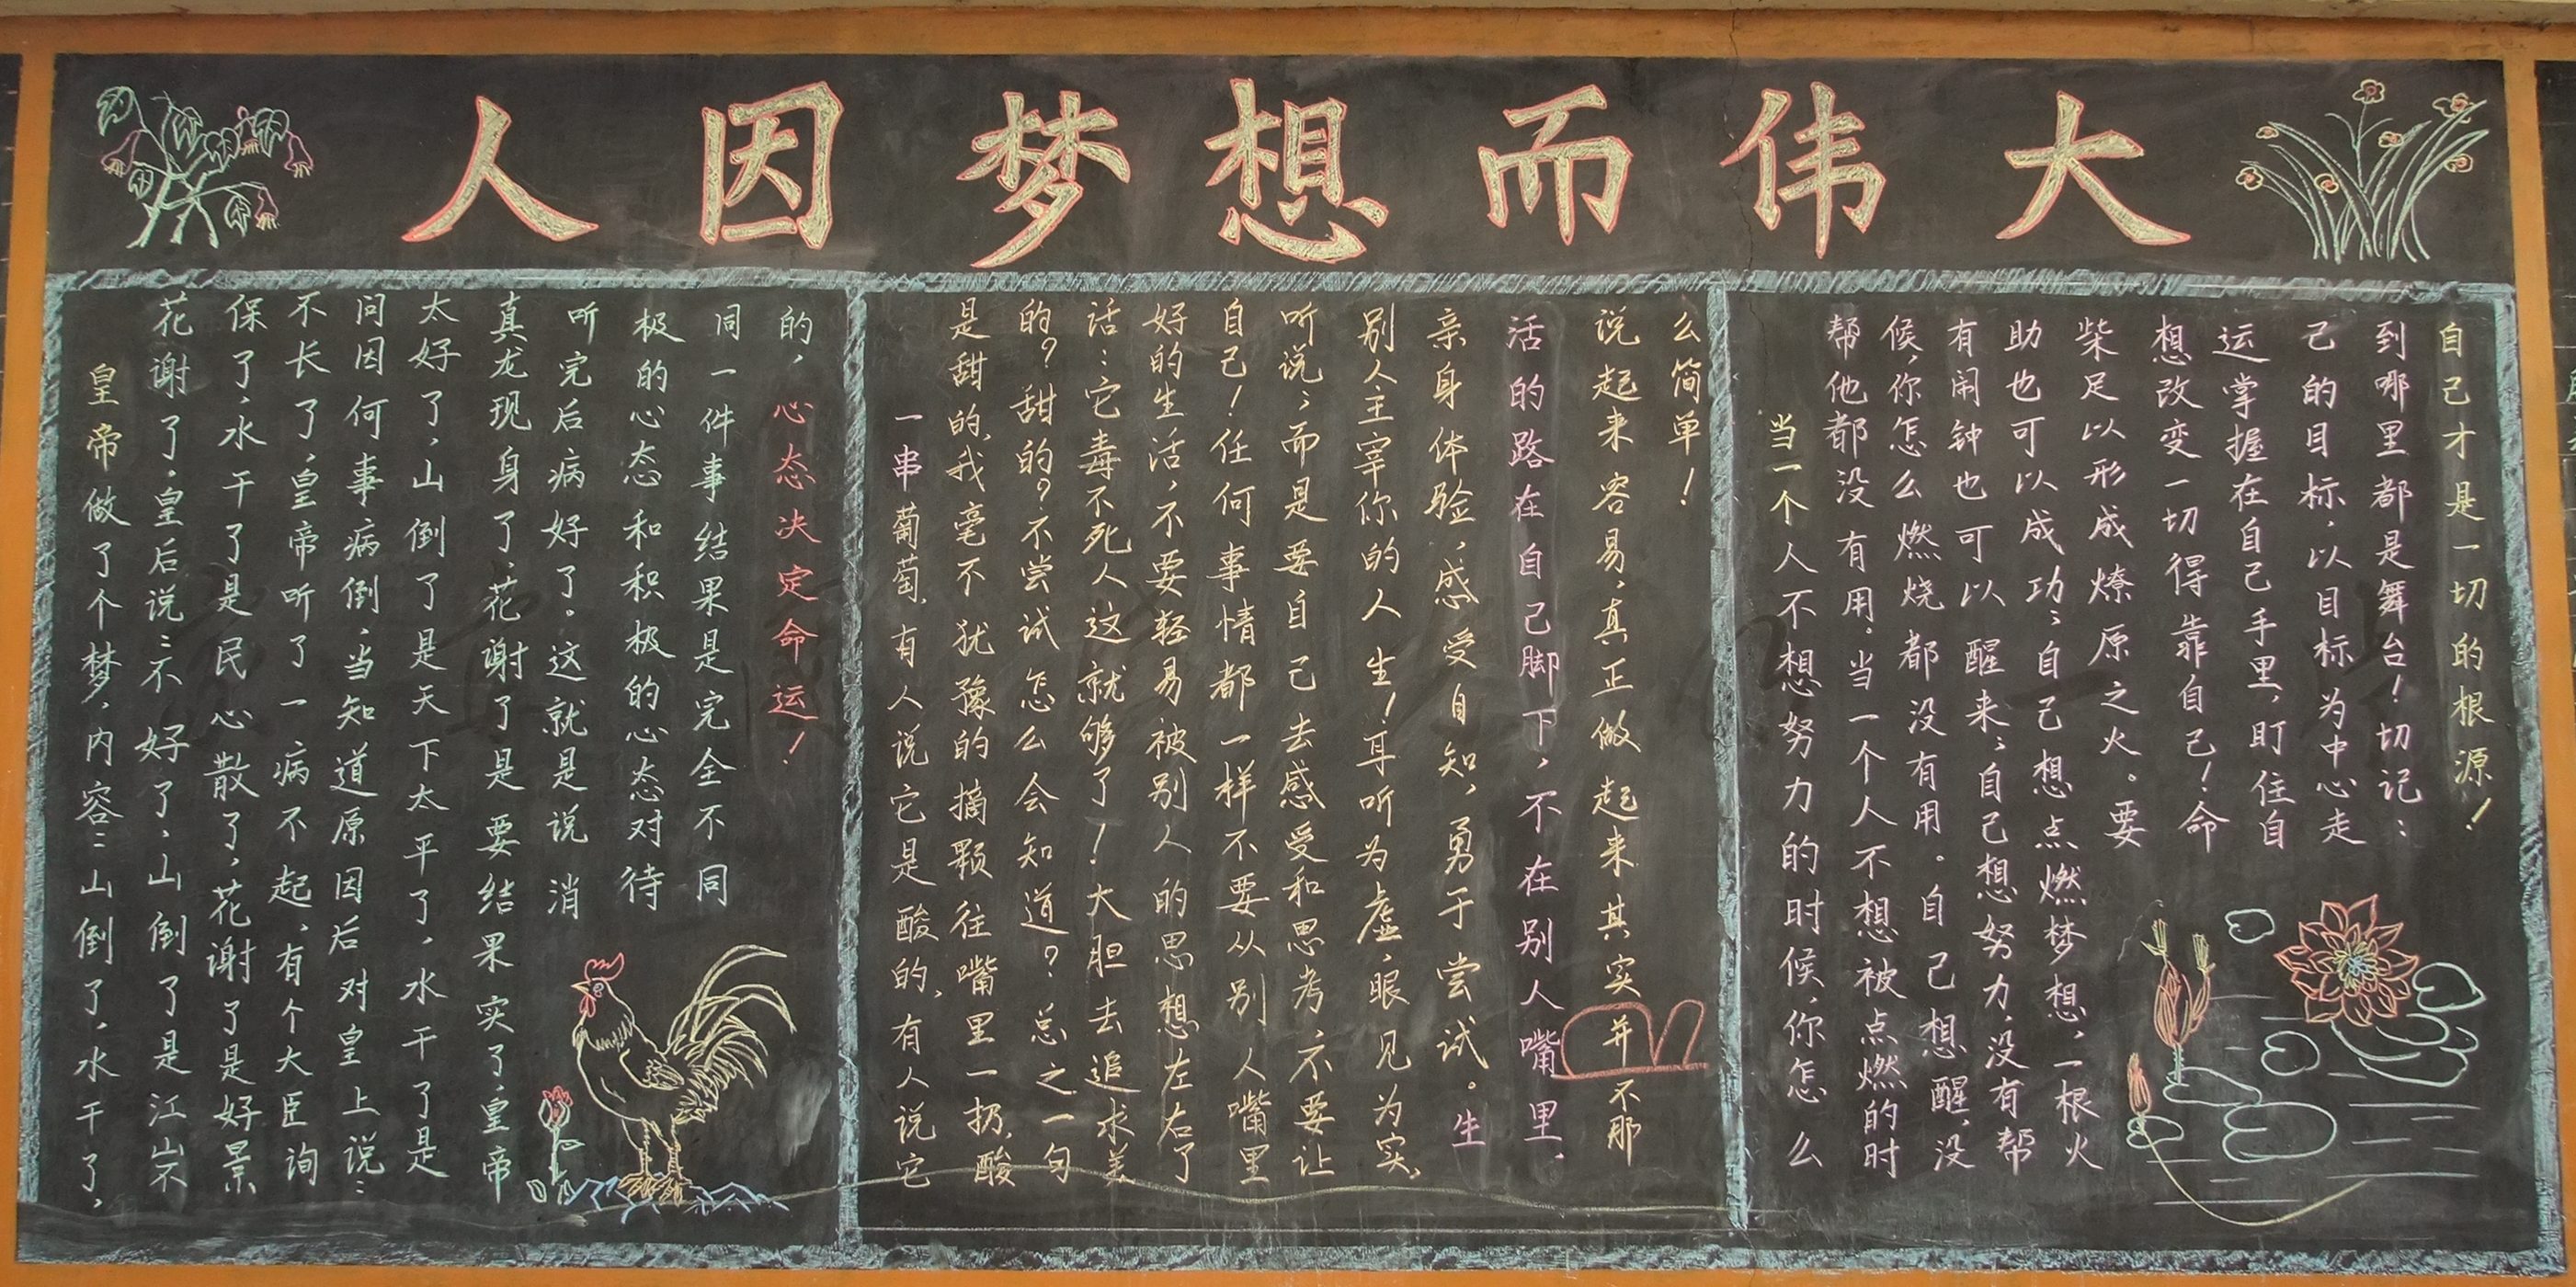 人因梦想而伟大
皇帝做了个梦，内容：山倒了，水干了，
花谢了。皇后说：不好了，山倒了是江山不
保了，水干了是民心散了，花谢了是好景
不长了，皇帝听了一病不起，有个大臣询
问因何事病倒，当知道原因后对皇上说：
太好了，山倒了是天下太平了，水干了是
真龙现身了，花谢了是要结果实了，皇帝
听完后病好了。这就是说消
极的心态和积极的心态对待
同一件事结果是完全不同
的，心态决定命运！
一串葡萄，有人说它是酸的，有人说它
是甜的，我毫不犹豫的摘颗往嘴里一扔，酸
的？甜的？不尝试怎么会知道？总之一句
话：它毒不死人这就够了！大胆去追求美
好的生活，不要轻易被别人的思想左右了
自己！任何事情都一样不要从别人嘴里
听说；而是要自己去感受和思考，不要让
别人主宰你的人生！耳听为虚，眼见为实，
亲身体验，感受自知，勇于尝试。生
活的路在自己脚下，不在别人嘴里，
说起来容易，真正做起来其实并不那
么简单！
当一个人不想努力的时候，你怎么
帮他都没有用。当一个人不想被点燃的时
候，你怎么燃烧都没有用。自己想醒，没
有闹钟也可以醒来；自己想努力，没有帮
助也可以成功；自己想点燃梦想，一根火
柴足以形成燎原之火。要
想改变一切得靠自己！命
运掌握在自己手里，盯住自
己的目标，以目标为中心走
到哪里都是舞台！切记：
自己才是一切的根源！